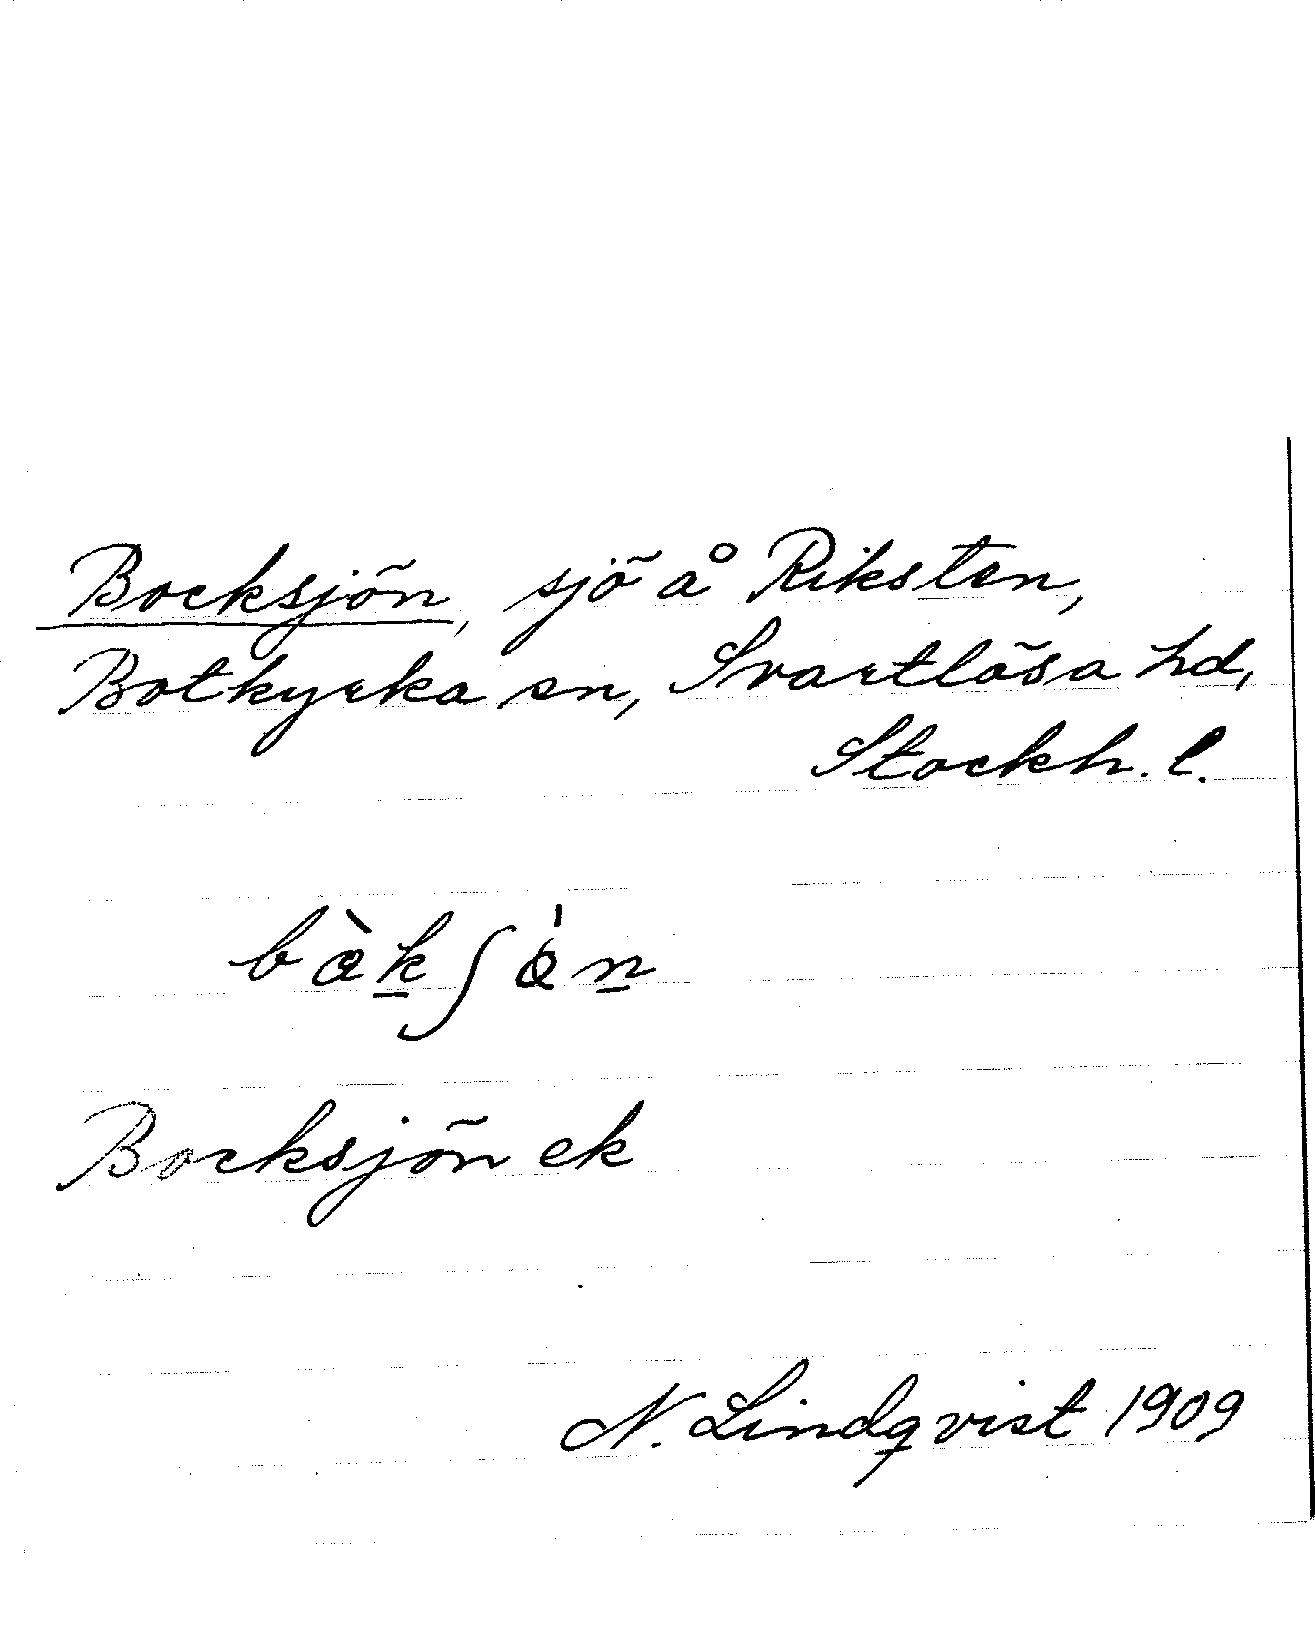 Bocksjön, sjö å Riksten,
Botkyrka sn, Svartlösa hd,
Stockh. l.
Bocksjön ek
N. Lindqvist 1909